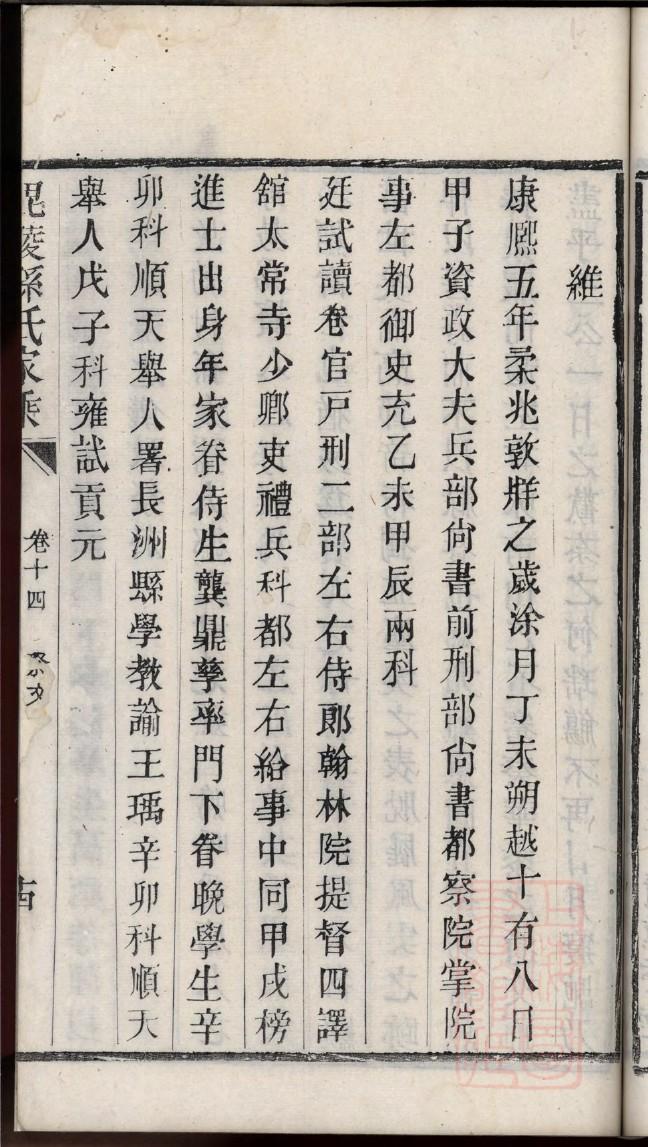 維
康熈五年柔兆敦牂之歲涂月丁未朔越十有八日
甲子資政大夫兵部尙書前刑部尙書都察院掌院
事左都御史充乙未甲辰兩科
廷試讀卷官戸刑二部左右侍郎翰林院提督四譯
舘太常寺少卿吏禮兵科都左右給事中同甲戌榜
進士出身年家眷侍生龔鼎孳率門下眷晚學生辛
卯科順天舉人署長洲縣學敎諭王瑀辛卯科順天
舉人戊子科雍試貢元
毘陵孫氏家乘
卷十四
祭文